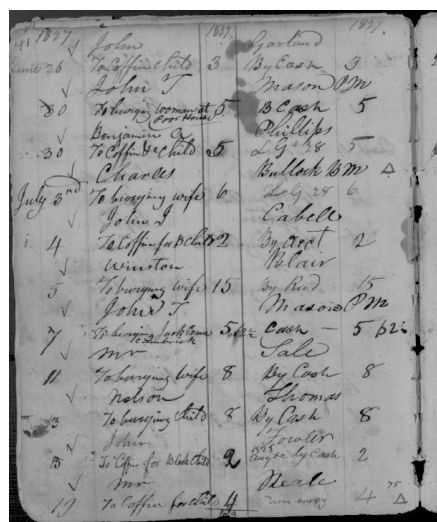 41 1827 1827 1827
John Garland
June 26 To Coffin Child 3 By Cash 3
John T Mason PM
30 To burying woman at Poor House 5 B Cash 5
Benjamine Phillips
30 To Coffin &c Child 5 LG 28 5
Charles Bullock BM
July 3rd To burying wife 6 LG 28 6
John J Cabell
4 To Coffin for B Child 2 By acct 2
Winston Blair
5 To burying wife 15 By 15
John T Mason PM
7 To burying 5,62½ Cash 5,62½
Mr Sale
11 To burying wife 8 By Cash 8
Nelson Thomas
13 To burying Child 8 By Cash 8
John Fowler
13 To Coffin for Black Child 2 by Cash 2
Mr Neale
19 To Coffin for Child 4 run away 4 75